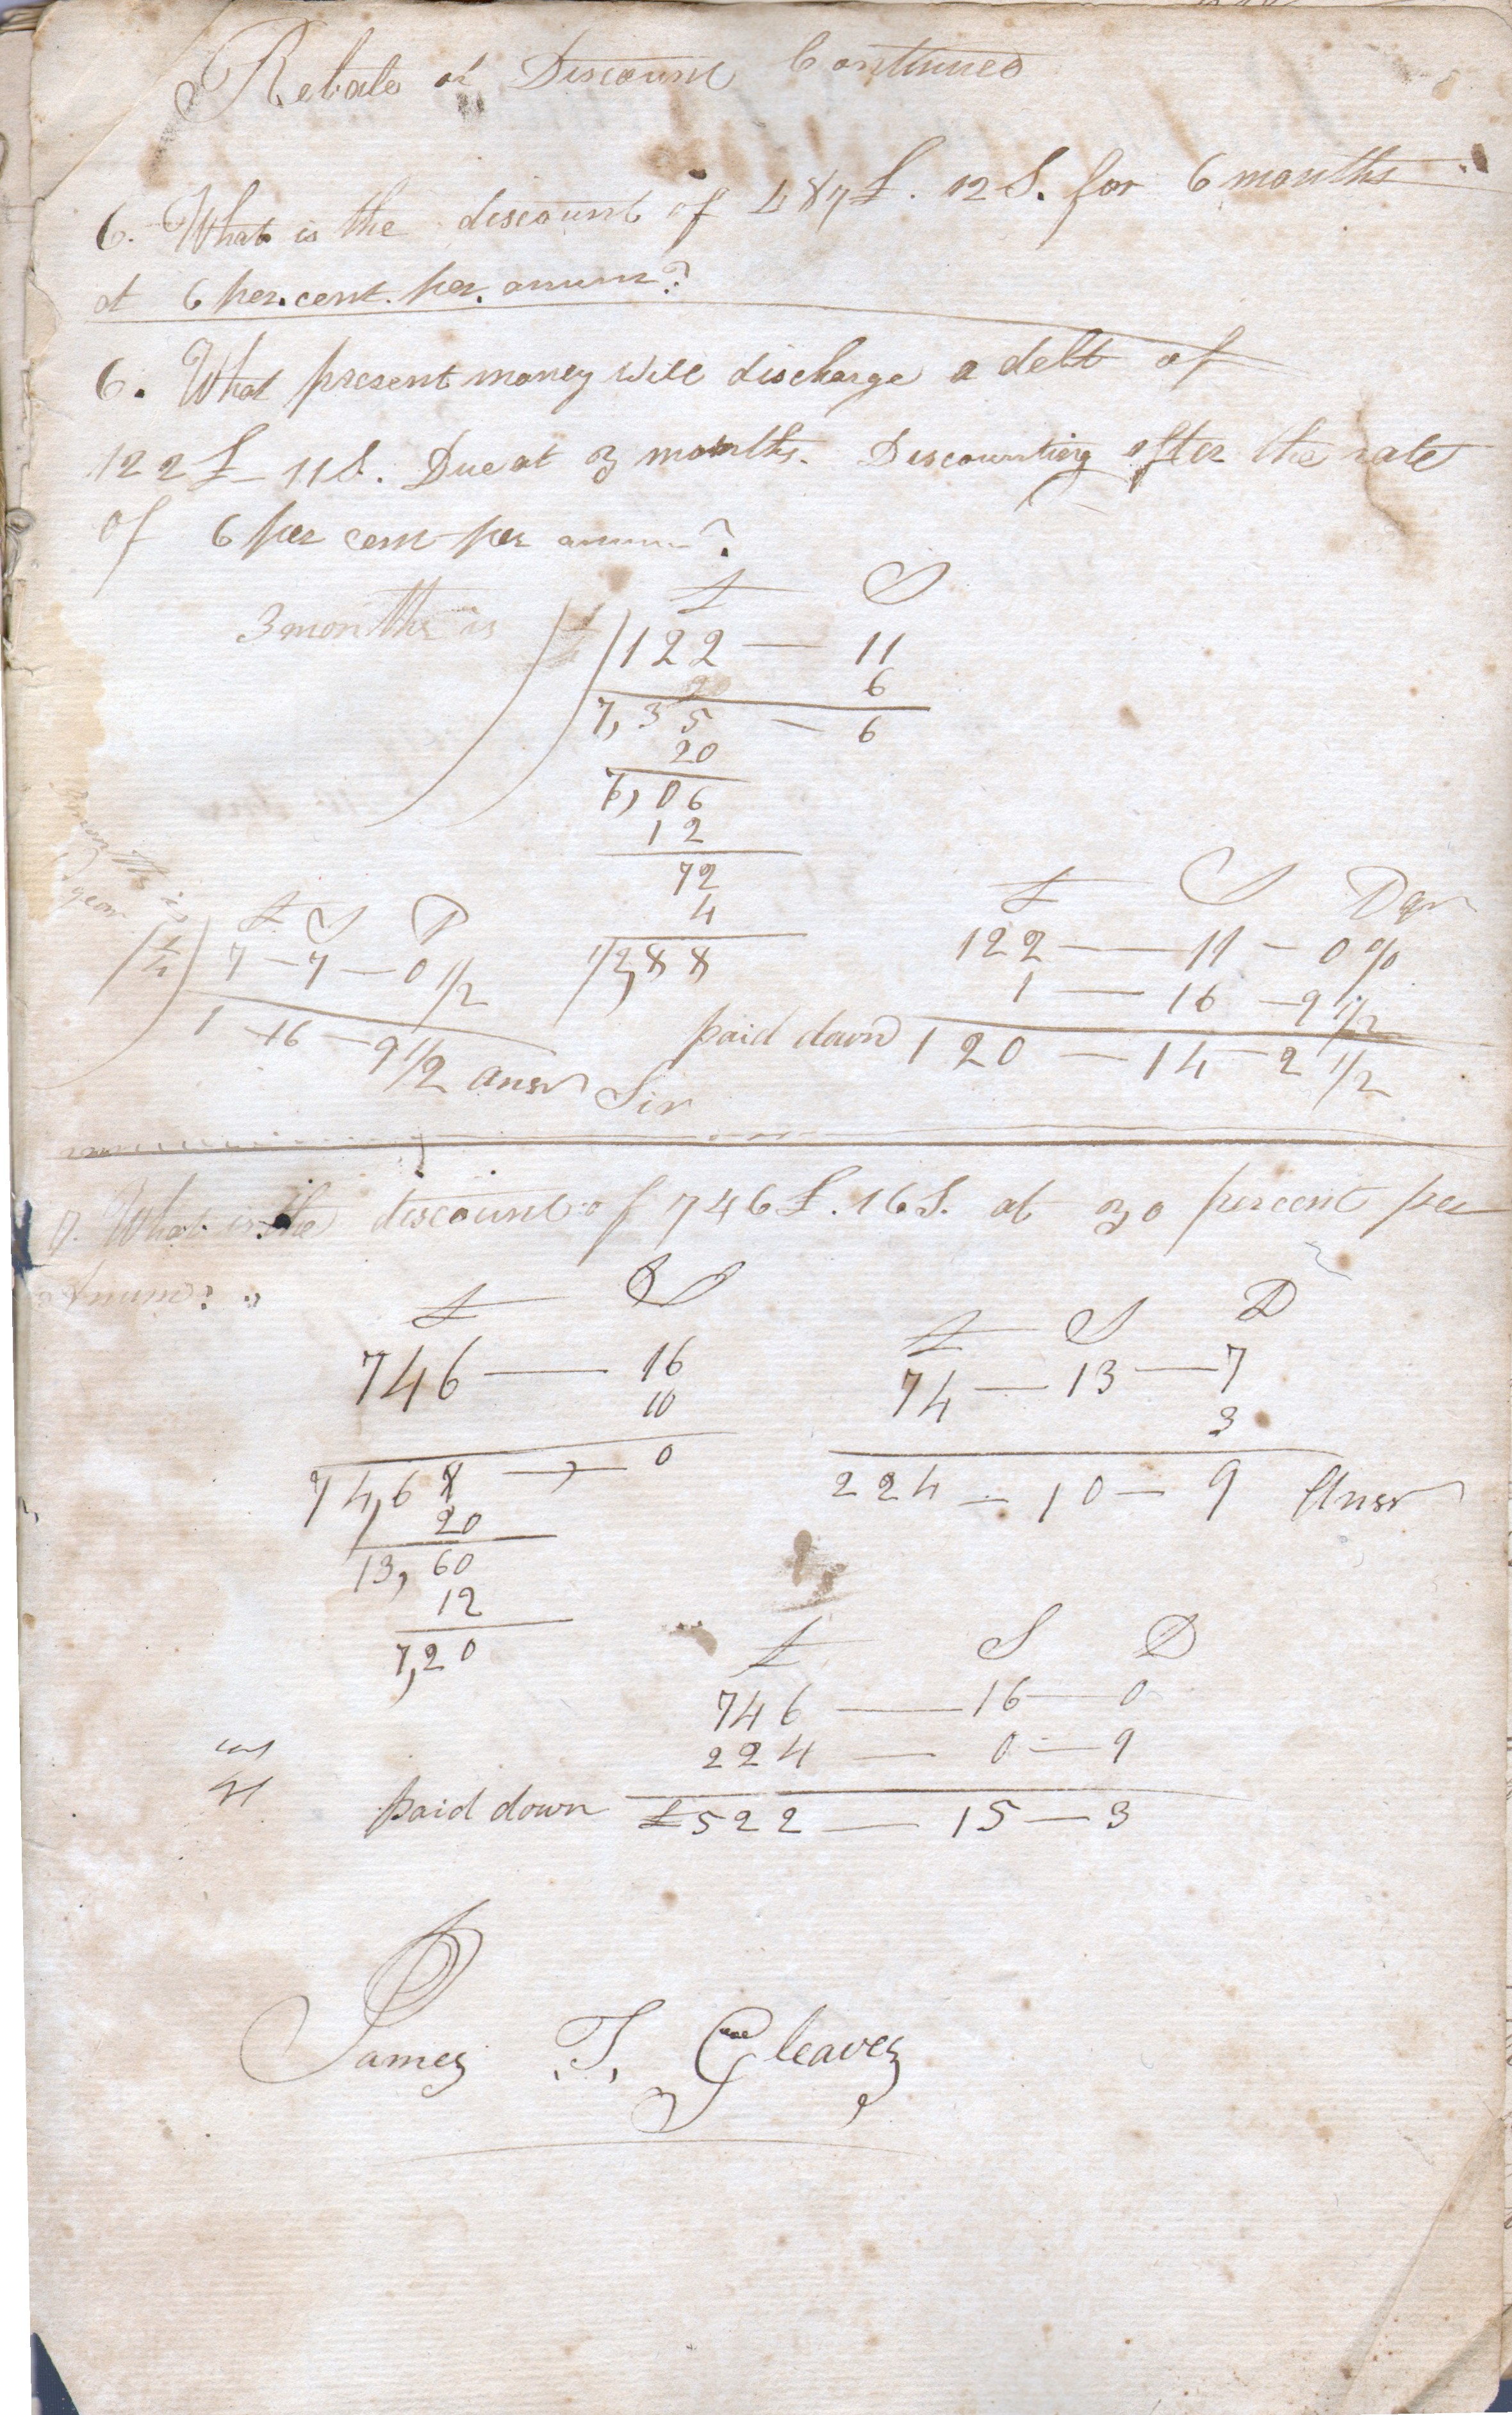 Rebate or Discount Continued
6. What is the discount of 487£. 12S. for 6 months
at 6 per.cent. per. annum?
6. What present money will discharge a debt of
122£ - 11S. Due at 3 months. Discounting after the rate
of 6 per cent per annum?
£ S
3 months is 1/4 122 — 11
6
7,35 — 6
20
7,06
12
72
4
2,88
months is
year
£ S D
1/4 7 — 7 — 0 1/2
1 — 16 — 9 1/2 ansr Sir
£ S D qr
122 — 11 — 0 %
1 — 16 — 9 1/2
paid down 120 — 14 — 2 1/2
7. What is the discount of 746£. 16S. at 30 percent per
Annum?
£ S
746 — 16
10
74,68 — 0
20
13,60
12
7,20
£ S D
74 — 13 — 7
3
224 — 10 — 9 Ansr
£ S D
746 — 16 — 0
224 — 0 — 9
paid down £522 — 15 — 3
James T. Gleaves